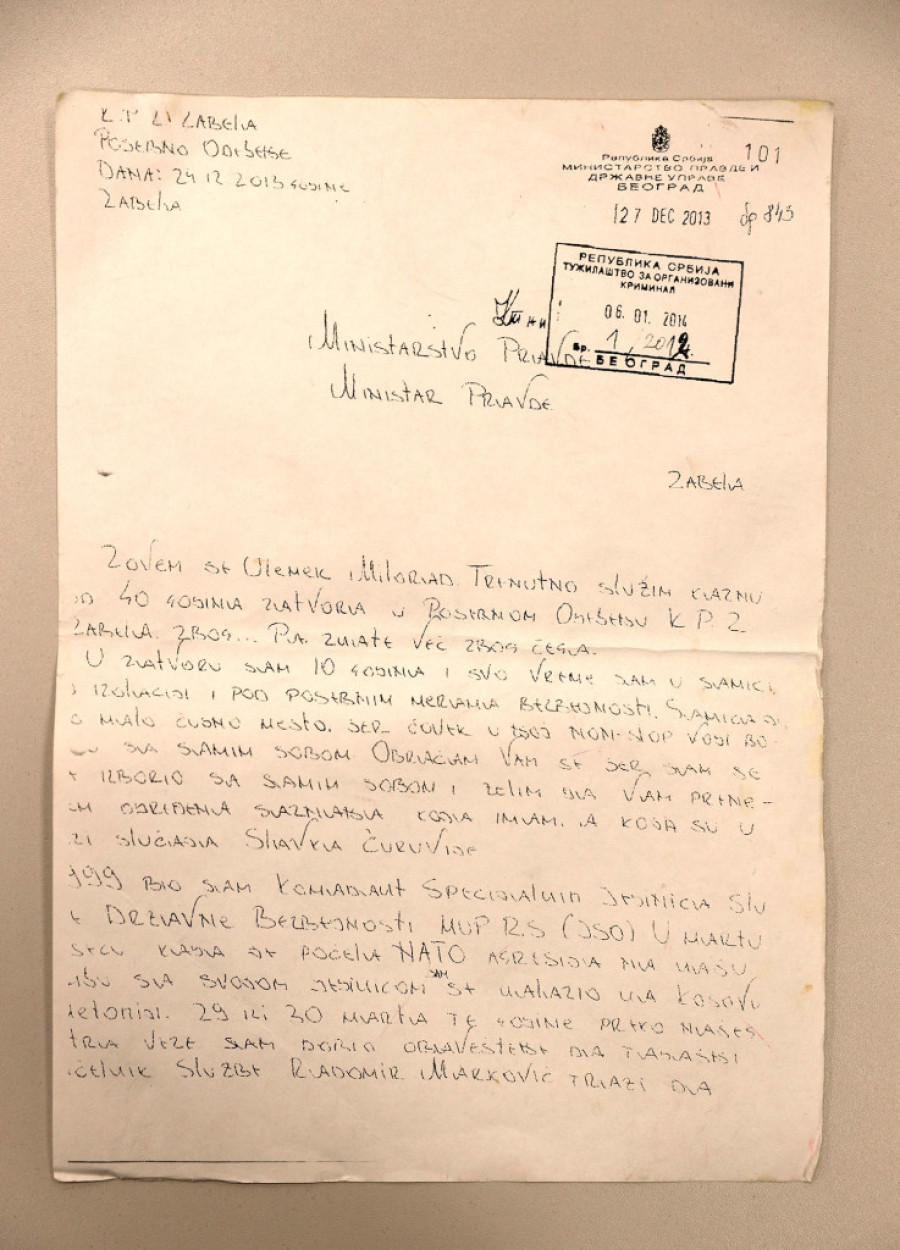 K P Z ZABELA
POSEBNO ODELJENJE
DANA: 24 12 2013 GODINE
ZABELA
Република Србија
МИНИСТАРСТВО ПРАВДЕ И
ДРЖАВНЕ УПРАВЕ
БЕОГРАД
101
27 DEC 2013
бр 843
РЕПУБЛИКА СРБИЈА
ТУЖИЛАШТВО ЗА ОРГАНИЗОВАНИ
КРИМИНАЛ
06. 01. 2014
Бр. 1
БЕОГРАД
MINISTARSTVO PRAVDE
MINISTAR PRAVDE
ZABELA
ZOVEM SE ULEMEK MILORAD. TRENUTNO SLUŽIM KAZNU
OD 40 GODINA ZATVORA U POSEBNOM ODELJENJU K P. Z
ZABELA. ZBOG... PA ZNATE VEĆ ZBOG ČEGA.
U ZATVORU SAM 10 GODINA I SVO VREME SAM U SAMICI,
IZOLACIJI I POD POSEBNIM MERAMA BEZBEDNOSTI. SAMICA JE
MALO ČUDNO MESTO. JER ČOVEK U NJOJ NON-STOP VODI BO-
SA SAMIM SOBOM OBRAĆAM VAM SE JER SAM SE
IZBORIO SA SAMIM SOBOM I ŽELIM DA VAM PRENE-
EM ODREĐENA SAZNANJA KOJA IMAM. A KOJA SU U
ZI SLUČAJA SLAVKA ĆURUVIJE
999 BIO SAM KOMANDANT SPECIJALNIH JEDINICA SLU
E DRŽAVNE BEZBEDNOSTI MUP RS (JSO) U MARTU
SECU KADA JE POČELA NATO AGRESIJA NA NAŠU
LJU SA SVOJOM JEDINICOM SAM SE NALAZIO NA KOSOVU
METOHIJI. 29 ILI 30 MARTA TE GODINE PREKO NAŠEG
TRA VEZE SAM DOBIO OBAVEŠTENJE DA TADAŠNJI
ČELNIK SLUŽBE RADOMIR MARKOVIĆ TRAŽI DA